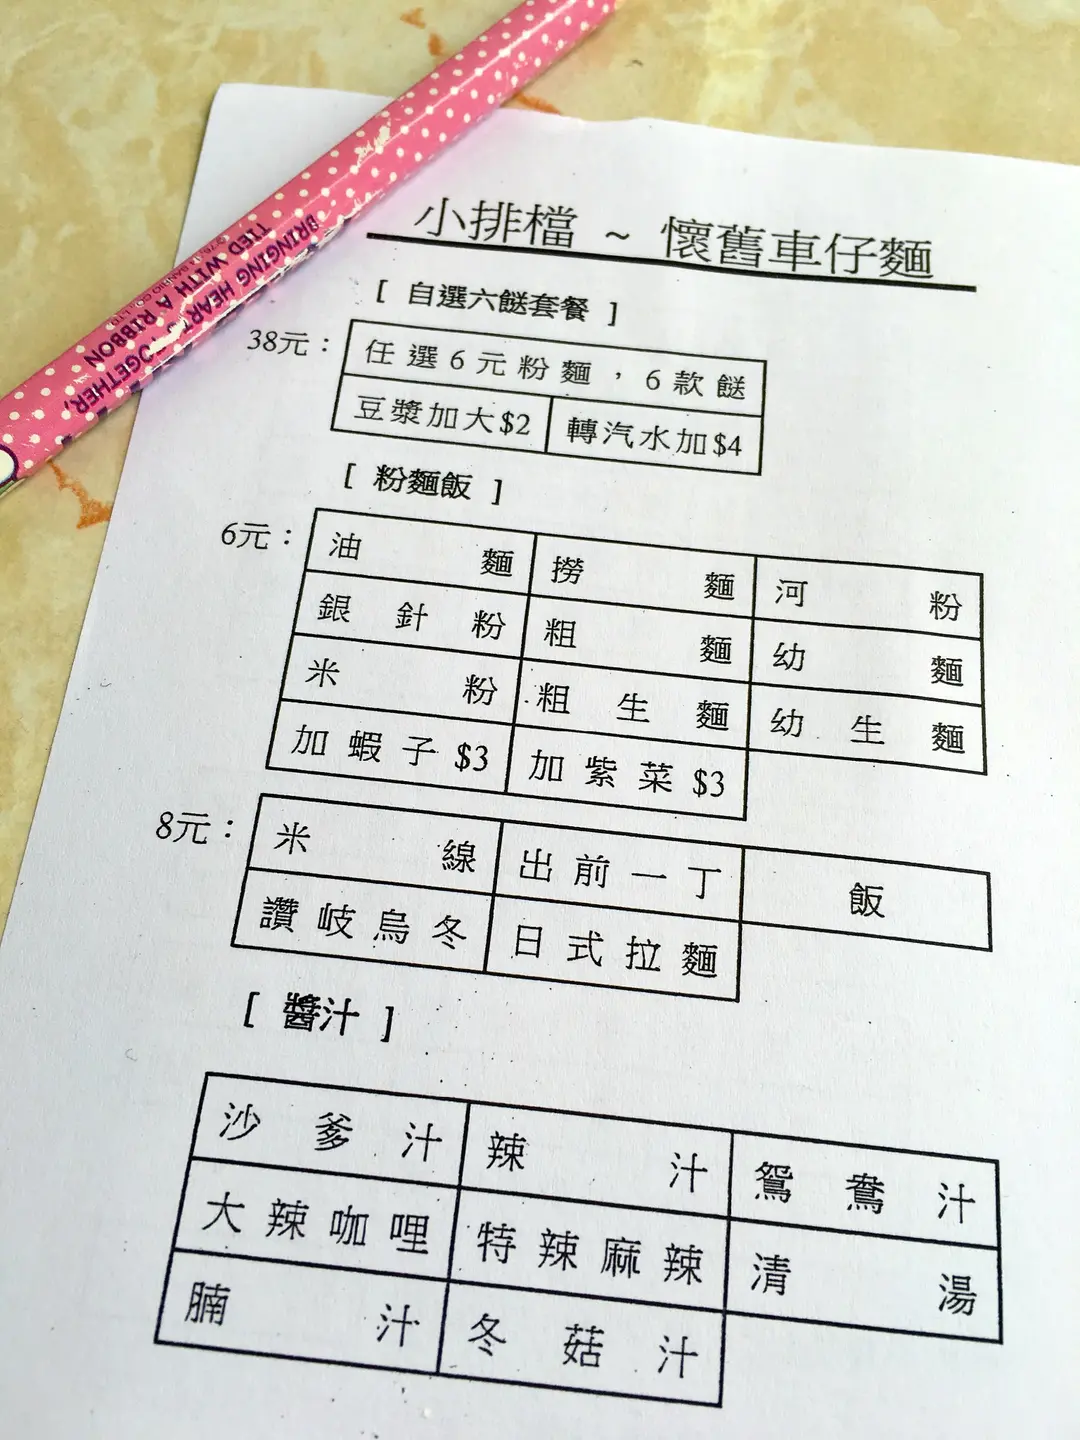 BRINGING HEARTS TOGETHER,
TIED WITH A RIBBON
小排檔 ~ 懷舊車仔麵
[ 自選六餸套餐 ]
38元： 任選6元粉麵，6款餸
豆漿加大$2 轉汽水加$4
[ 粉麵飯 ]
6元： 油麵 撈麵 河粉
銀針粉 粗麵 幼麵
米粉 粗生麵 幼生麵
加蝦子$3 加紫菜$3
8元： 米線 出前一丁 飯
讚岐烏冬 日式拉麵
[ 醬汁 ]
沙爹汁 辣汁 鴛鴦汁
大辣咖哩 特辣麻辣 清湯
腩汁 冬菇汁